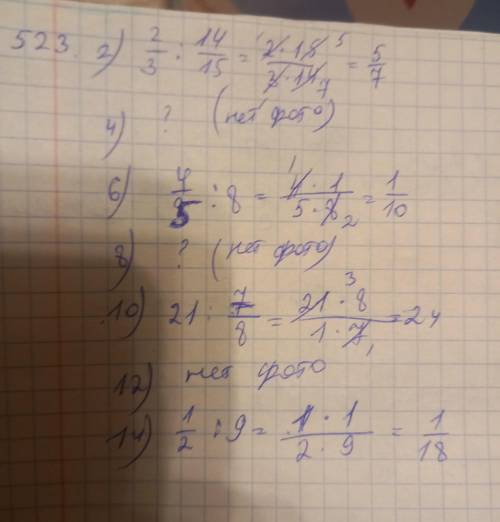 523. 2) 2/3 : 14/15 = 2·15/3·14 = 5/7
4) ? (нет фото)
6) 4/5 : 8 = 4·1/5·8 = 1/10
8) ? (нет фото)
10) 21 : 7/8 = 21·8/1·7 = 24
12) нет фото
14) 1/2 : 9 = 1·1/2·9 = 1/18